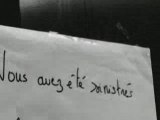 Vous avez été sinistrés